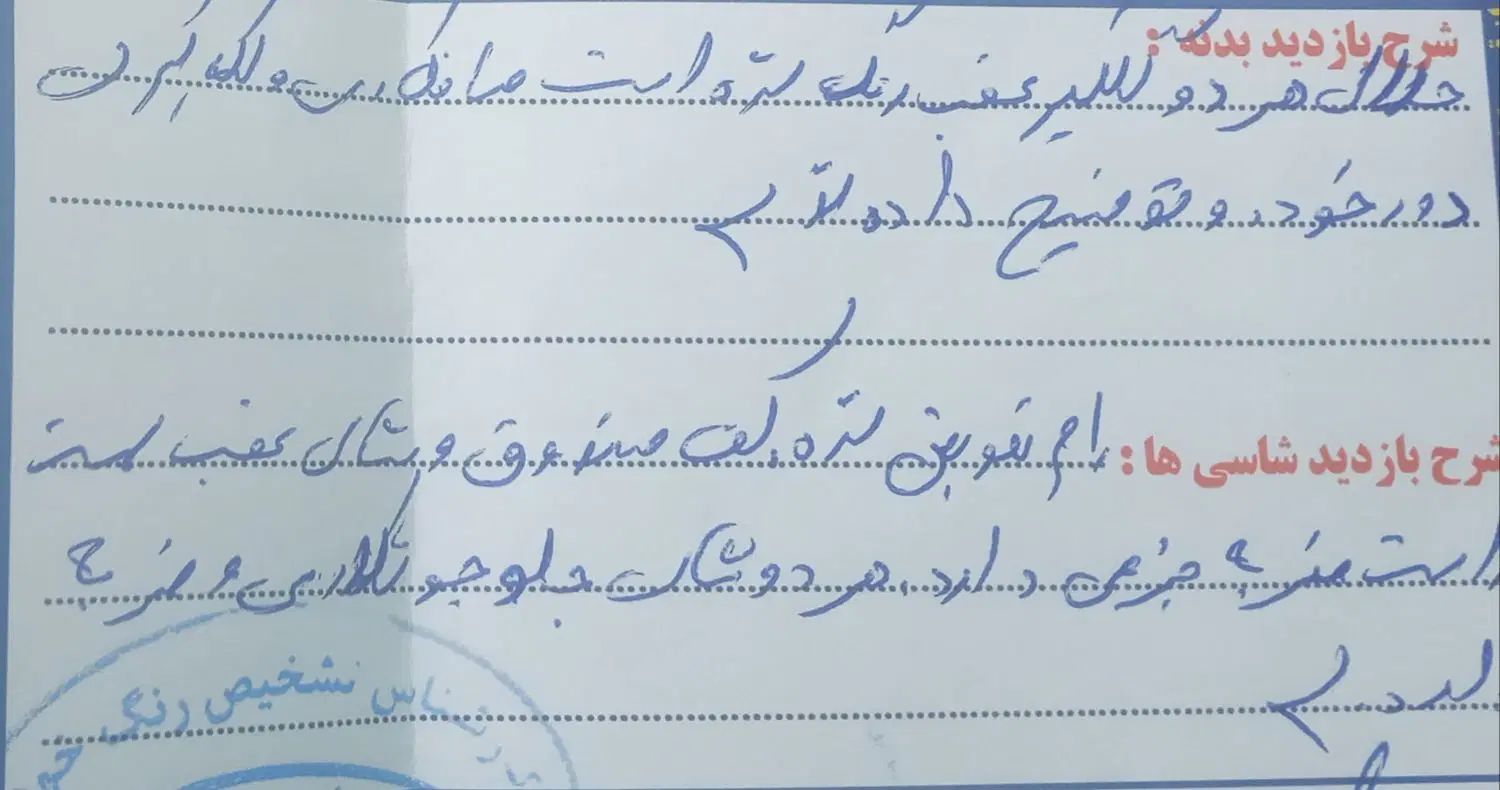 شرح بازدید بدنه :
هر دو گلگیر عقب رنگ شده است صافکاری و لکه گیری
دور خودرو توضیح داده شد
شرح بازدید شاسی ها : رام تعویض شده کف صندوق و شاسی عقب سمت
راست ضربه جزئی دارد هر دو شاسی جلو جوشکاری و ضربه
کارشناس تشخیص رنگ